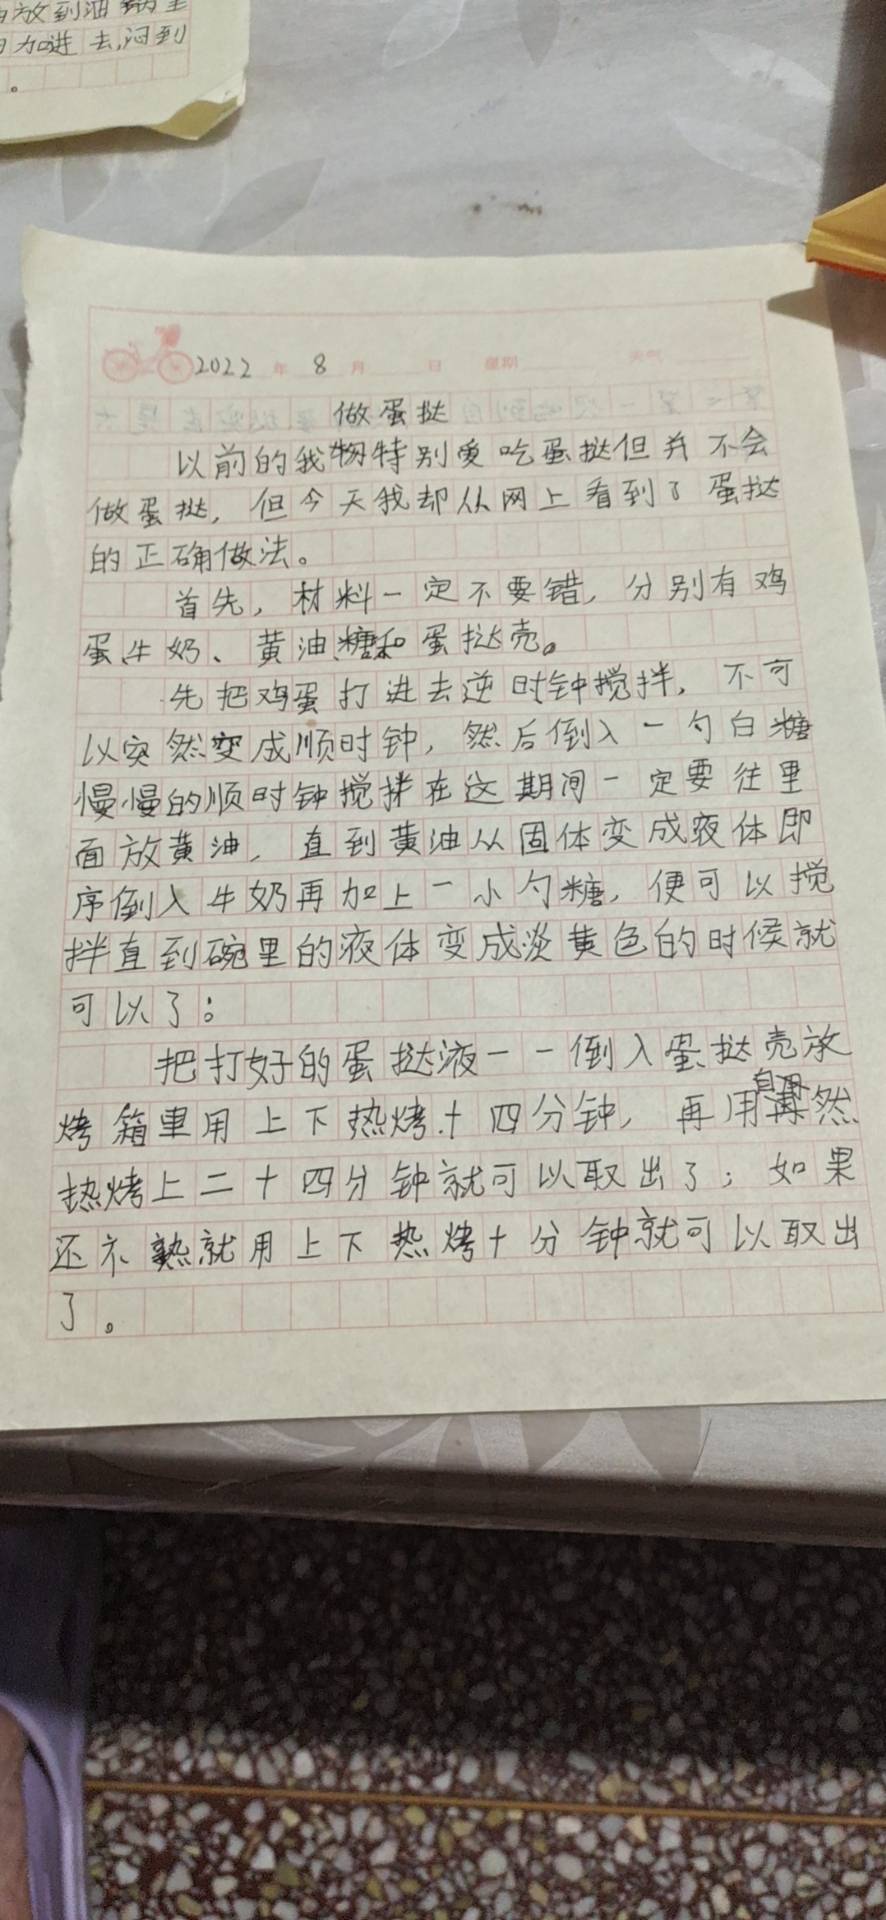 放到油锅里
加进去,闷到
。
2022年 8月 日 星期 天气
做蛋挞
以前的我特别爱吃蛋挞但并不会
做蛋挞，但今天我却从网上看到了蛋挞
的正确做法。
首先，材料一定不要错，分别有鸡
蛋、牛奶、黄油、糖和蛋挞壳。
先把鸡蛋打进去逆时钟搅拌，不可
以突然变成顺时钟，然后倒入一勺白糖
慢慢的顺时钟搅拌在这期间一定要往里
面放黄油，直到黄油从固体变成液体即
序倒入牛奶再加上一小勺糖，便可以搅
拌直到碗里的液体变成淡黄色的时候就
可以了；
把打好的蛋挞液一一倒入蛋挞壳放
烤箱里用上下热烤十四分钟，再用自然
热烤上二十四分钟就可以取出了；如果
还不熟就用上下热烤十分钟就可以取出
了。